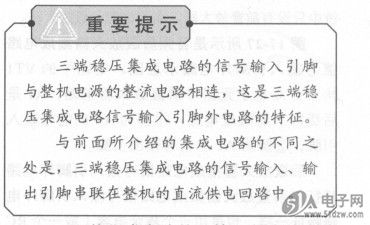 重要提示
三端稳压集成电路的信号输入引脚
与整机电源的整流电路相连，这是三端稳
压集成电路信号输入引脚外电路的特征。
与前面所介绍的集成电路的不同之
处是，三端稳压集成电路的信号输入、输
出引脚串联在整机的直流供电回路中
电子网
www.51dzw.com